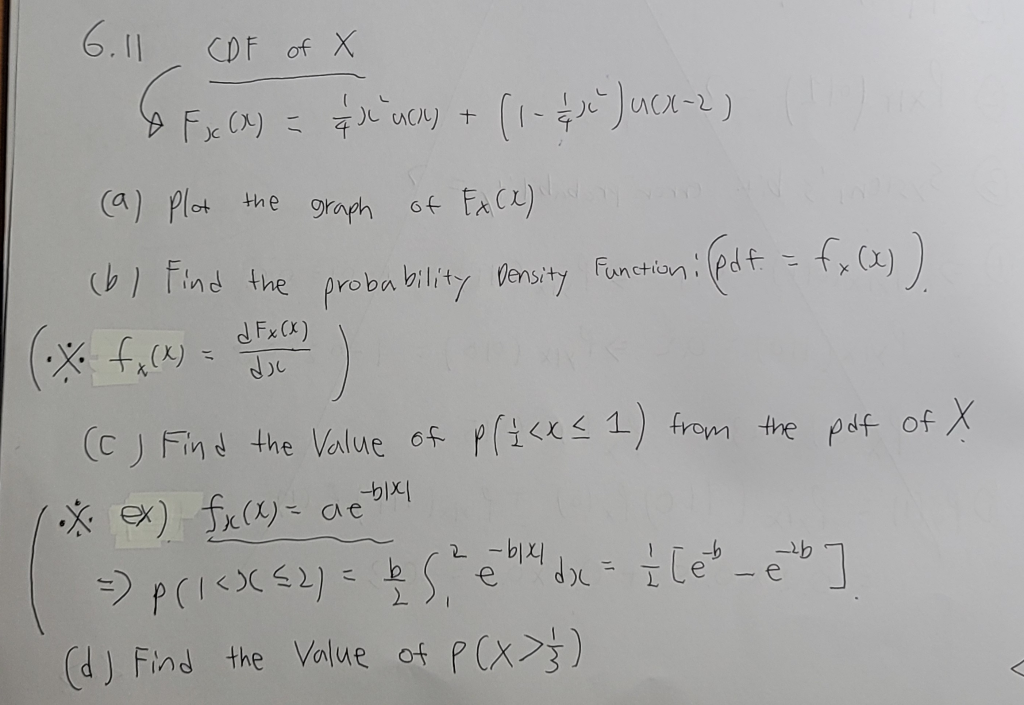 6.11 CDF of X
Fx(x) = 1/4 x² u(x) + (1 - 1/4 x²) u(x-2)
(a) plot the graph of Fx(x)
(b) Find the probability Density Function: (pdf = fx(x)).
(※ fx(x) = dFx(x)/dx)
(c) Find the Value of p(1/2 < x ≤ 1) from the pdf of X.
(※ ex) fx(x) = ae^-b|x|
=> p(1 < x ≤ 2) = b/2 ∫₁² e^-b|x| dx = 1/2 [e^-b - e^-2b].
(d) Find the Value of P(X > 1/3)